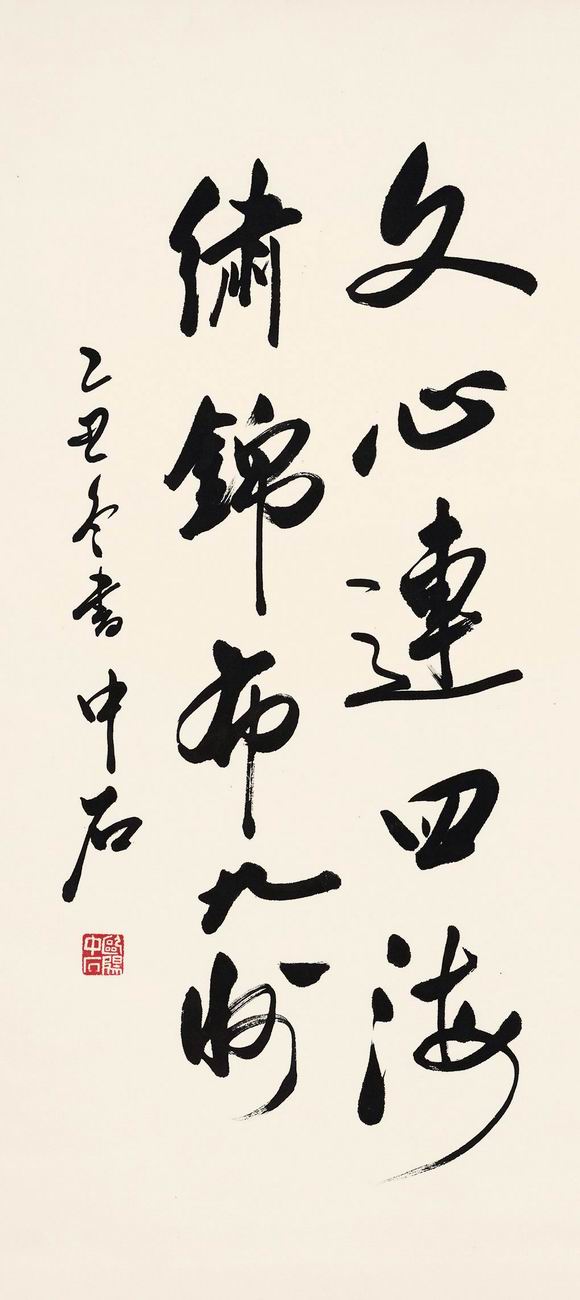 文心連四海
繡錦布九州
乙丑冬書中石
歐陽中石